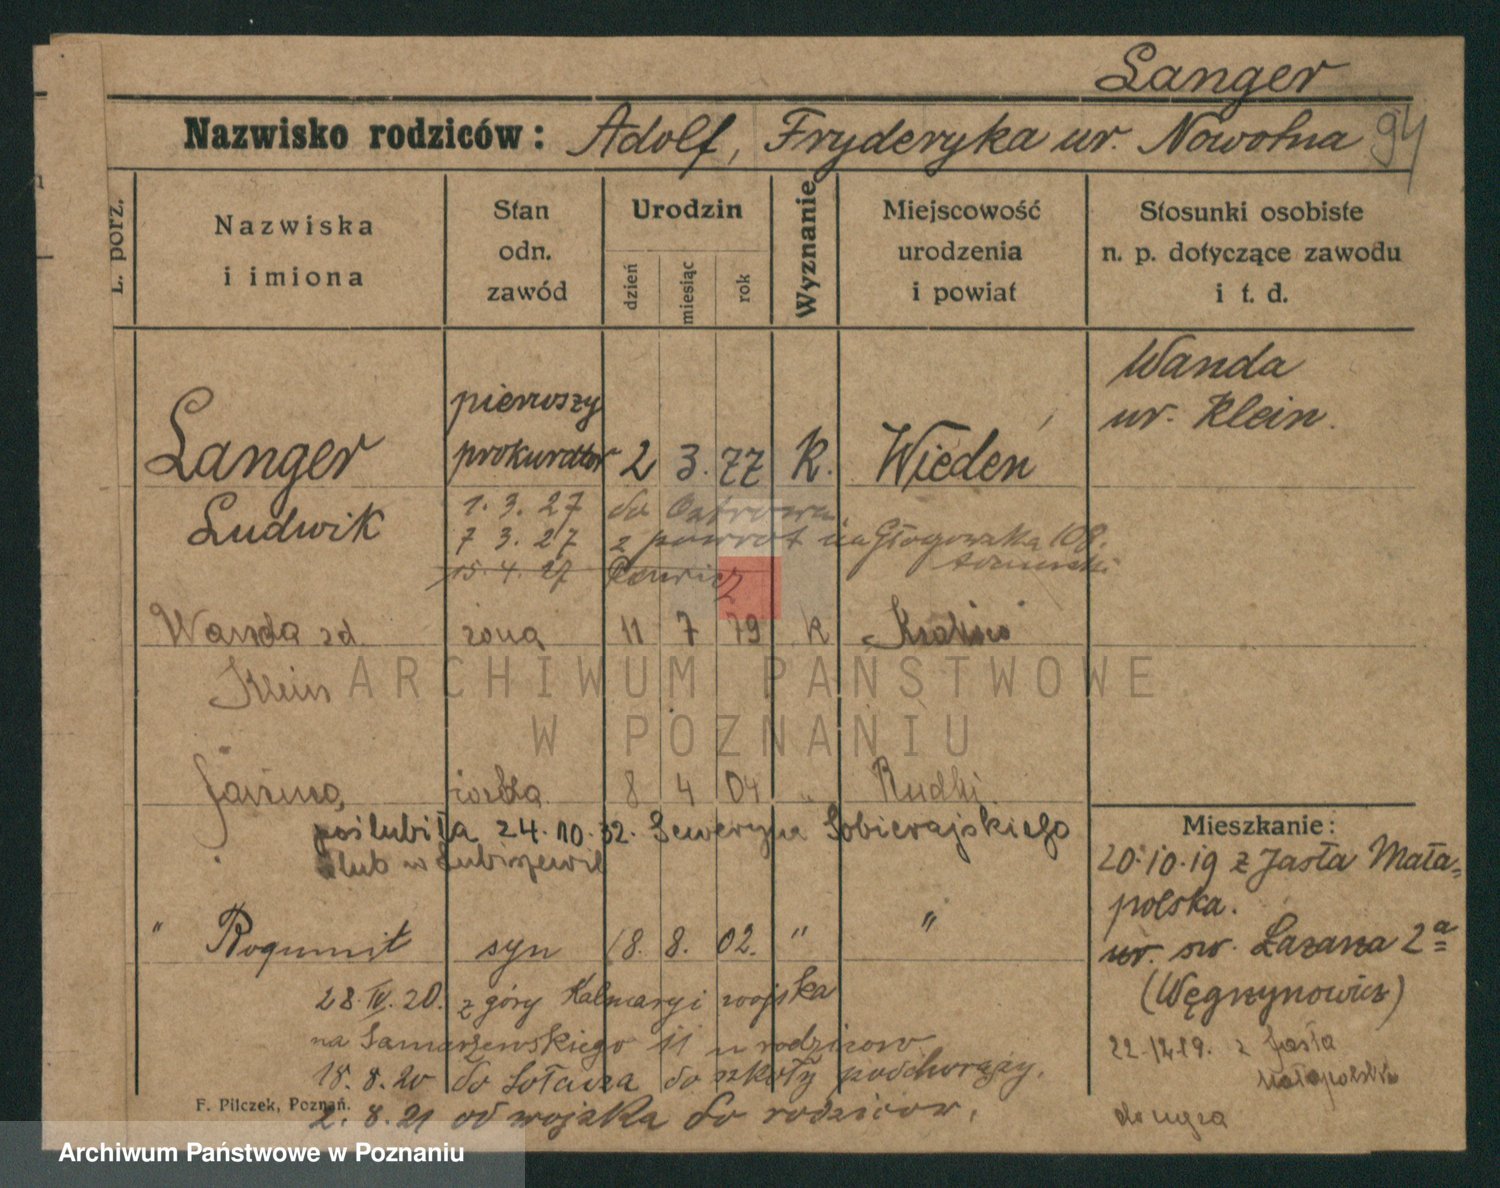 Langer
Nazwisko rodziców: Adolf, Fryderyka ur. Nowotna 94
L. porz.
Nazwiska i imiona
Stan odn. zawód
Urodzin
dzień
miesiąc
rok
Wyznanie
Miejscowość urodzenia i powiat
Stosunki osobiste n. p. dotyczące zawodu i t. d.
Wanda
ur. Klein.
pierwszy
Langer prokurator 2 3. 77 K. Wiedeń
Ludwik
1. 3. 27 do Ostrowa
7 3. 27 z powrot na Głogowska 108.
15. 4. 27 Rawicz
Wanda zd. żona 11 7 79 k Kraków
Klein
Janina córka 8 4 04 " Rudki.
poślubiła 24.10.32. Seweryna Sobierajskiego
ślub w
" Bogumił syn 18. 8. 02. " "
28. IV. 20. z góry Kalwaryi wojska
na Samarzewskiego 11 u rodziców
18. 8. 20 do Sołacza do szkoły podchorąży.
2. 8. 21 od wojska do rodziców.
Mieszkanie:
20.10.19 z Jasła Mało=
polska.
ur. św. Łazarza 2a
(Węgrzynowicz)
22.12.19. z Jasła
Małopolska
do męża
F. Pilczek, Poznań.
ARCHIWUM PAŃSTWOWE
W POZNANIU
Archiwum Państwowe w Poznaniu